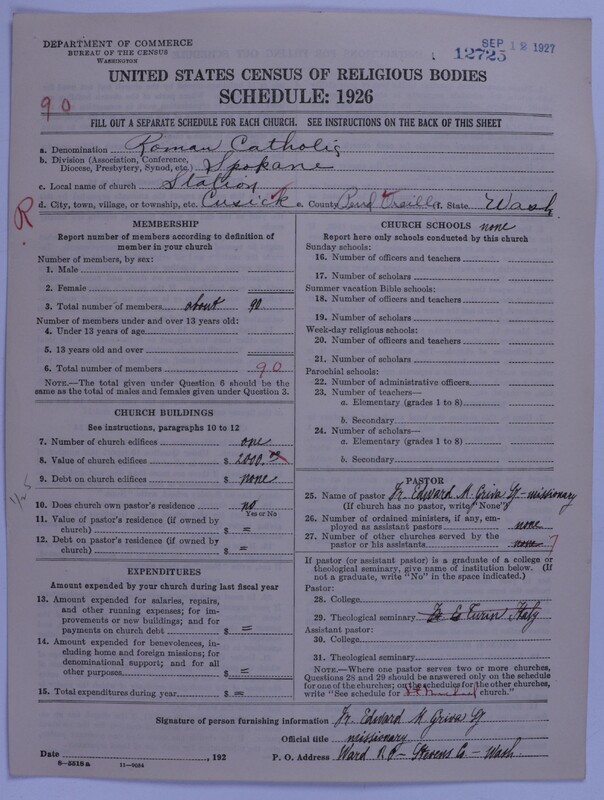 DEPARTMENT OF COMMERCE
BUREAU OF THE CENSUS
WASHINGTON
12725
SEP 12 1927
UNITED STATES CENSUS OF RELIGIOUS BODIES
SCHEDULE: 1926
90
FILL OUT A SEPARATE SCHEDULE FOR EACH CHURCH. SEE INSTRUCTIONS ON THE BACK OF THIS SHEET
a. Denomination Roman Catholic
b. Division (Association, Conference, Diocese, Presbytery, Synod, etc.) Spokane
c. Local name of church Station
R
d. City, town, village, or township, etc. Cusick e. County Pend Oreille f. State Wash
MEMBERSHIP
Report number of members according to definition of
member in your church
Number of members, by sex:
1. Male
2. Female
3. Total number of members about 90
Number of members under and over 13 years old:
4. Under 13 years of age
5. 13 years old and over
6. Total number of members 90
NOTE.—The total given under Question 6 should be the
same as the total of males and females given under Question 3.
CHURCH BUILDINGS
See instructions, paragraphs 10 to 12
7. Number of church edifices one
8. Value of church edifices $ 2000.00
9. Debt on church edifices $ none
10. Does church own pastor's residence? no
Yes or No
11. Value of pastor's residence (if owned by
church) $ =
12. Debt on pastor's residence (if owned by
church) $ =
EXPENDITURES
Amount expended by your church during last fiscal year
13. Amount expended for salaries, repairs,
and other running expenses; for im-
provements or new buildings; and for
payments on church debt $ =
14. Amount expended for benevolences, in-
cluding home and foreign missions; for
denominational support; and for all
other purposes $ =
15. Total expenditures during year $ =
CHURCH SCHOOLS none
Report here only schools conducted by this church
Sunday schools:
16. Number of officers and teachers
17. Number of scholars
Summer vacation Bible schools:
18. Number of officers and teachers
19. Number of scholars
Week-day religious schools:
20. Number of officers and teachers
21. Number of scholars
Parochial schools:
22. Number of administrative officers
23. Number of teachers—
a. Elementary (grades 1 to 8)
b. Secondary
24. Number of scholars—
a. Elementary (grades 1 to 8)
b. Secondary
PASTOR
25. Name of pastor Fr. Edward M. Griva SJ - missionary
(If church has no pastor, write "None")
26. Number of ordained ministers, if any, em-
ployed as assistant pastors none
27. Number of other churches served by the
pastor or his assistants none 7
If pastor (or assistant pastor) is a graduate of a college or
theological seminary, give name of institution below. (If
not a graduate, write "No" in the space indicated.)
Pastor:
28. College
29. Theological seminary Turin Italy
Assistant pastor:
30. College
31. Theological seminary
NOTE.—Where one pastor serves two or more churches,
Questions 28 and 29 should be answered only on the schedule
for one of the churches; on the schedules for the other churches,
write "See schedule for St Michael church."
Signature of person furnishing information Fr. Edward M. Griva SJ
Official title missionary
Date , 192 P. O. Address Ward P.O - Stevens Co - Wash.
8-5518a 11-9054